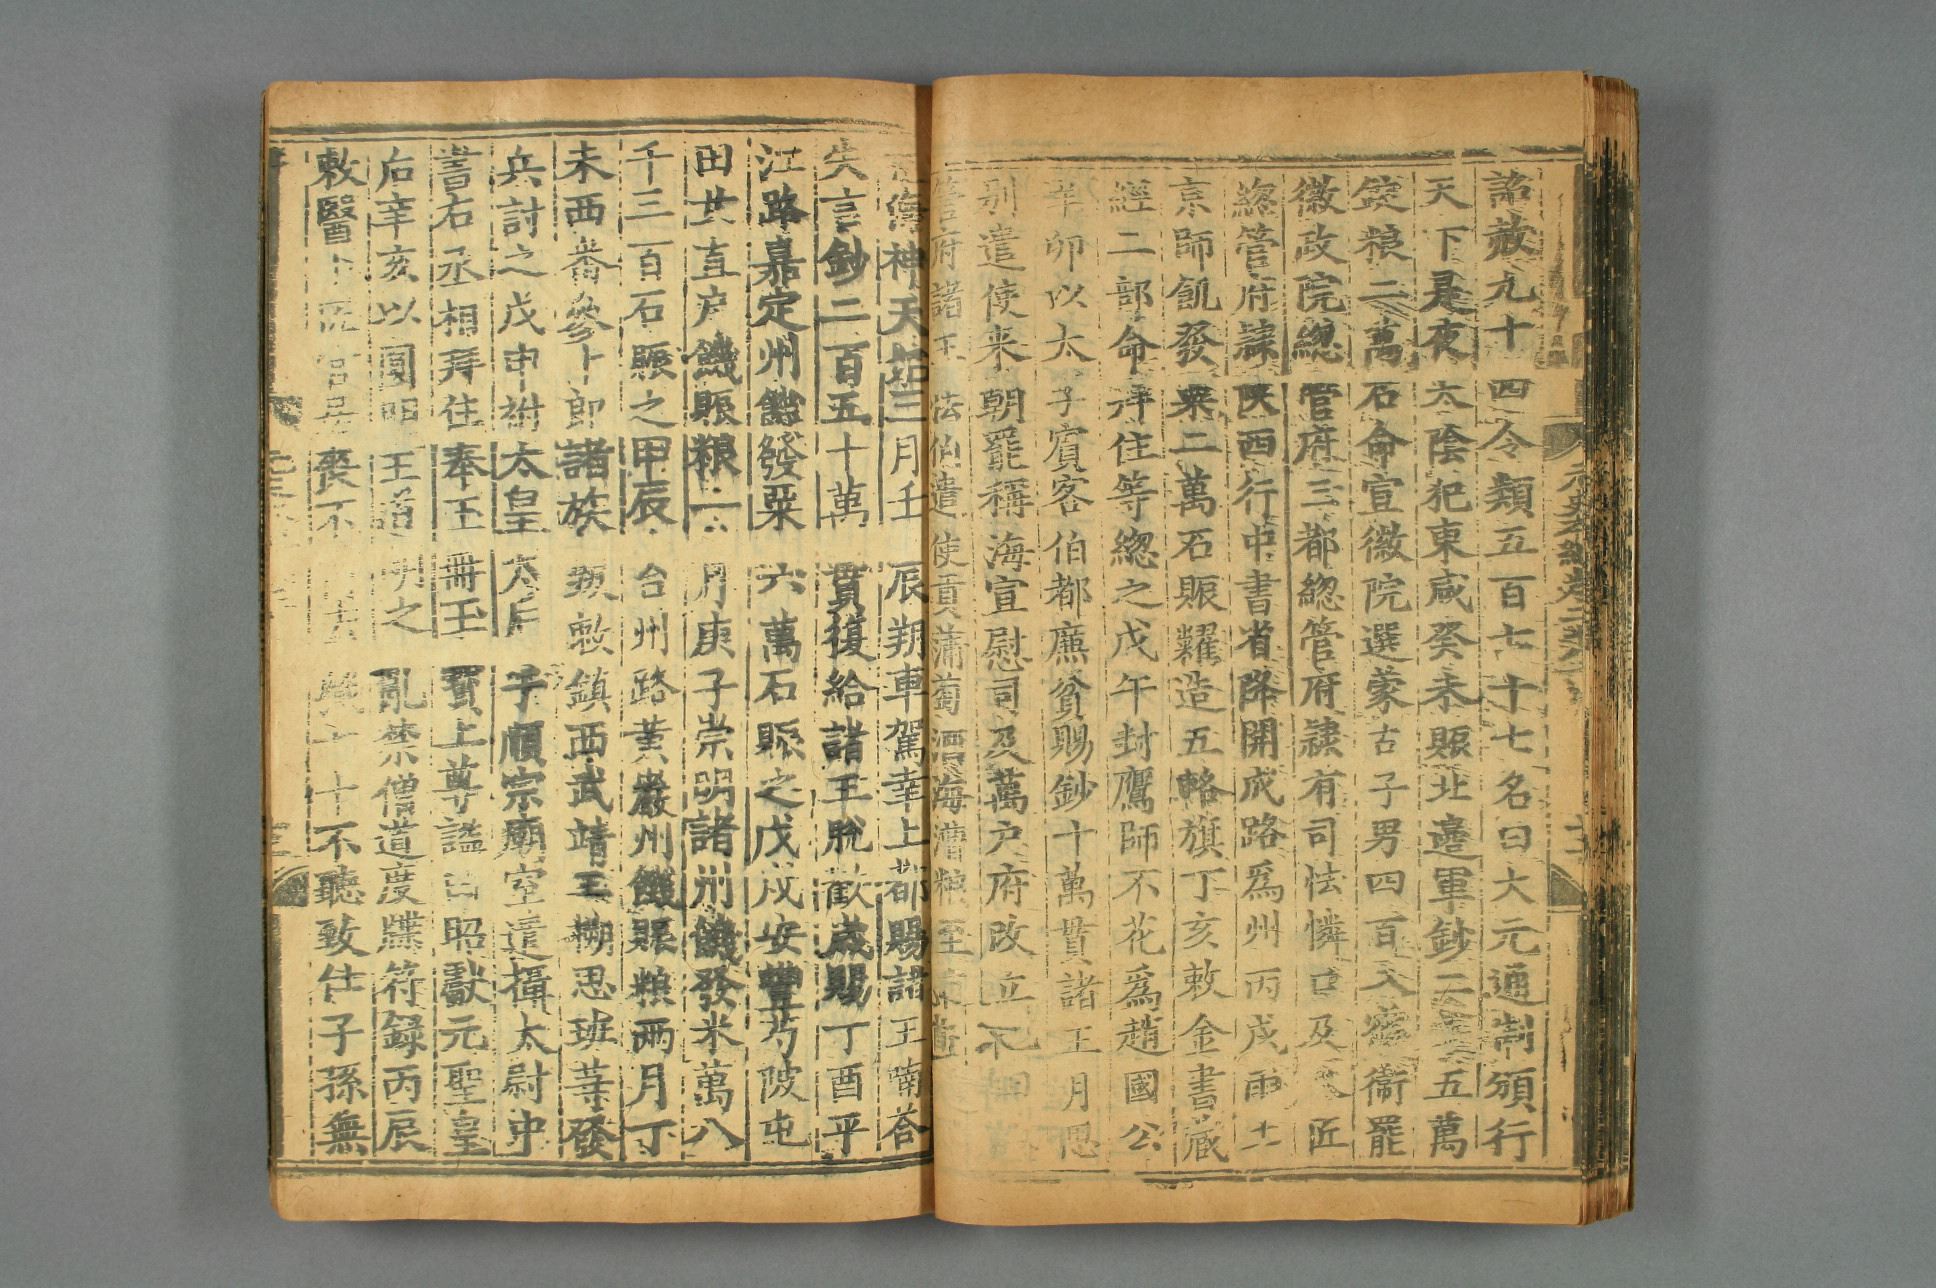 詔赦九十四令類五百七十七名曰大元通制頒行
天下是夜太陰犯東咸癸未賑北邊軍鈔二十五萬
錠粮二萬石命宣徽院選蒙古子男四百入宿衞罷
徽政院總管府三都總管府隷有司怯憐口及人匠
總管府隷陝西行中書省降開成路爲州丙戌雨土
京師飢發粟二萬石賑糶造五輅旗丁亥敕金書藏
經二部命拜住等總之戊午封鷹師不花爲趙國公
辛卯以太子賓客伯都廉貧賜鈔十萬貫諸王月思
別遣使来朝罷稱海宣慰司及萬户府改立屯田
管府諸王怯伯遣使貢蒲萄酒海漕粮至直
海神天妃三月壬辰朔車駕幸上都賜諸王喃荅
失言鈔二百五十萬貫復給諸王脫歡歲賜丁酉平
江路嘉定州饑發粟六萬石賑之戊戌安豐芍陂屯
田女直户饑賑粮一月庚子崇明諸州饑發米萬八
千三百石賑之甲辰台州路黃巖州饑賑粮兩月丁
未西番參卜郎諸族叛敕鎮西武靖王搠思班等發
兵討之戊申祔太皇太后于順宗廟室遣攝太尉中
書右丞相拜住奉玉冊玉寶上尊謚曰昭獻元聖皇
后辛亥以圓明王道明之亂禁僧道度牒符録丙辰
敕醫卜匠官居喪不去職七十不聽致仕子孫無